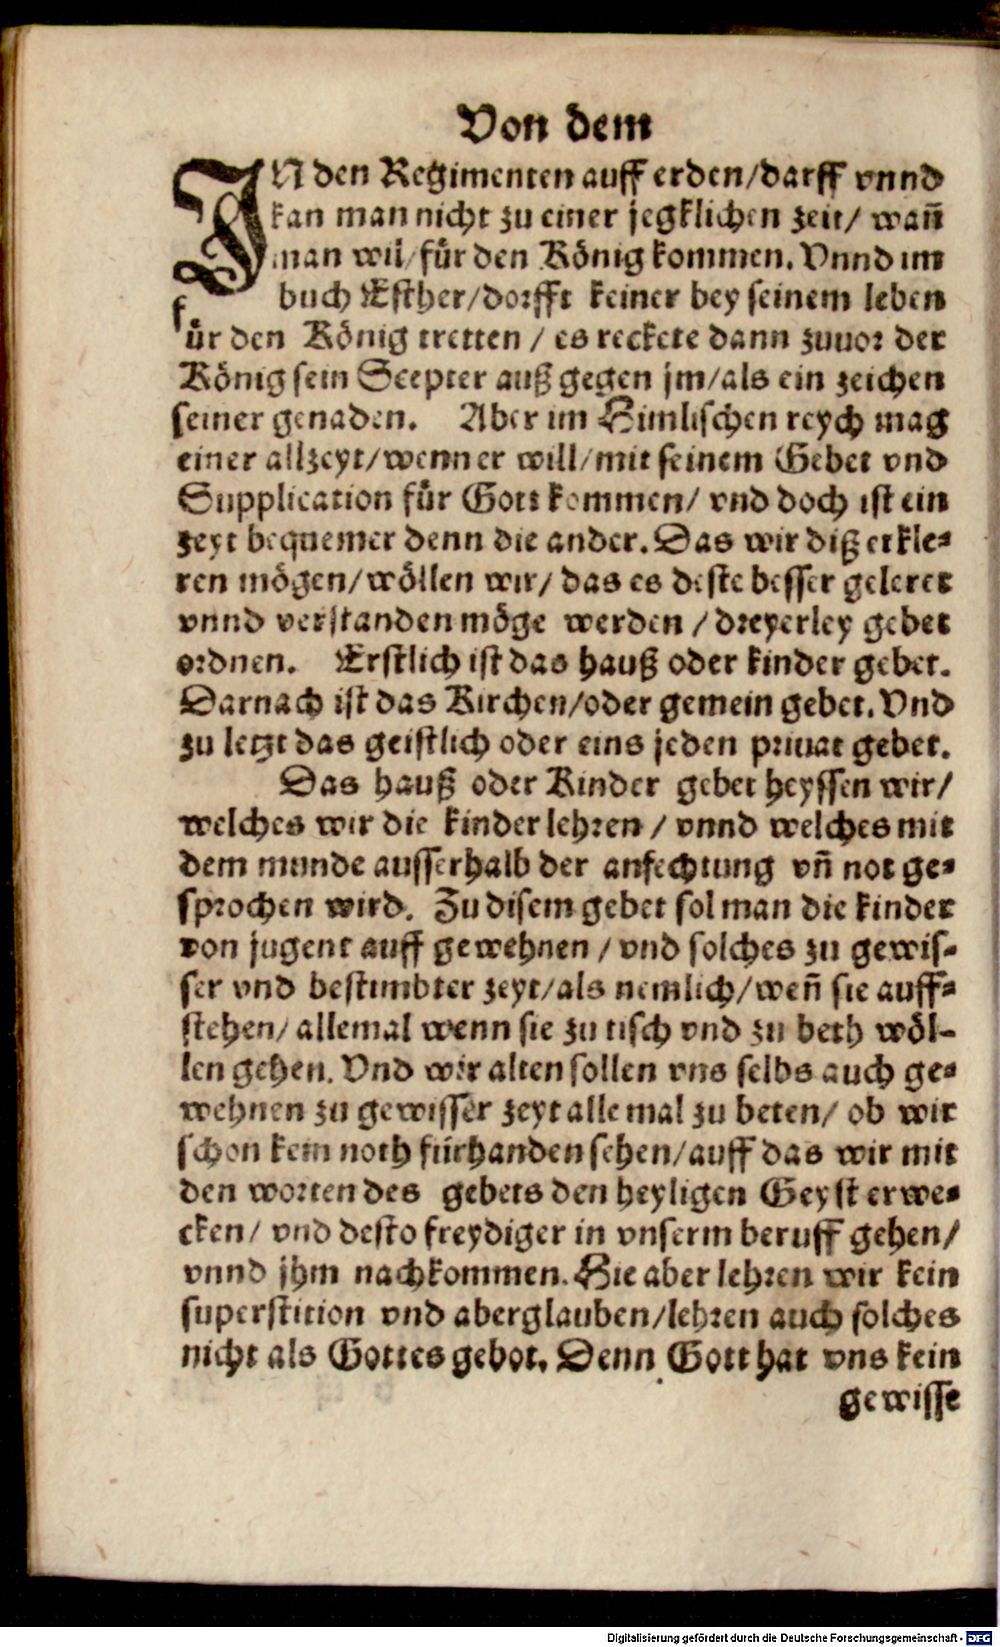 Von dem
IN den Regimenten auff erden/darff vnnd
kan man nicht zu einer jegklichen zeit/ wañ
man wil/für den König kommen. Vnnd im
buch Esther/dorfft keiner bey seinem leben
für den König tretten / es reckete dann zuuor der
König sein Scepter auß gegen jm/als ein zeichen
seiner genaden. Aber im Himlischen reych mag
einer allzeyt/wenn er will/mit seinem Gebet vnd
Supplication für Gott kommen/ vnd doch ist ein
zeyt bequemer denn die ander. Das wir diß erkle-
ren mögen/wöllen wir/ das es deste besser geleret
vnnd verstanden möge werden / dreyerley gebet
ordnen. Erstlich ist das hauß oder kinder gebet.
Darnach ist das Kirchen/oder gemein gebet. Vnd
zu letzt das geistlich oder eins jeden priuat gebet.
Das hauß oder Kinder gebet heyssen wir/
welches wir die kinder lehren / vnnd welches mit
dem munde ausserhalb der anfechtung vñ not ge-
sprochen wird. Zu disem gebet sol man die kinder
von jugent auff gewehnen / vnd solches zu gewis-
ser vnd bestimbter zeyt/als nemlich/weñ sie auff-
stehen/ allemal wenn sie zu tisch vnd zu beth wöl-
len gehen. Vnd wir alten sollen vns selbs auch ge-
wehnen zu gewisser zeyt alle mal zu beten/ ob wir
schon kein noth fürhanden sehen/auff das wir mit
den worten des gebets den heyligen Geyst erwe-
cken/ vnd desto freydiger in vnserm beruff gehen/
vnnd jhm nachkommen. Hie aber lehren wir kein
superstition vnd aberglauben/lehren auch solches
nicht als Gottes gebot. Denn Gott hat vns kein
gewisse
Digitalisierung gefördert durch die Deutsche Forschungsgemeinschaft - DFG